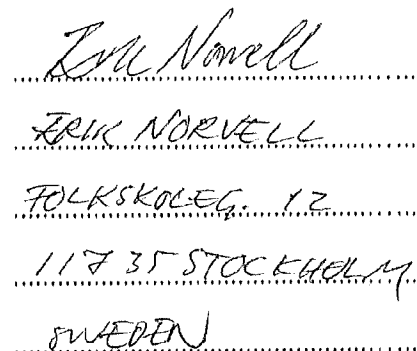 Erik Norvell
ERIK NORVELL
FOLKSKOLEG. 12
117 35 STOCKHOLM
SWEDEN